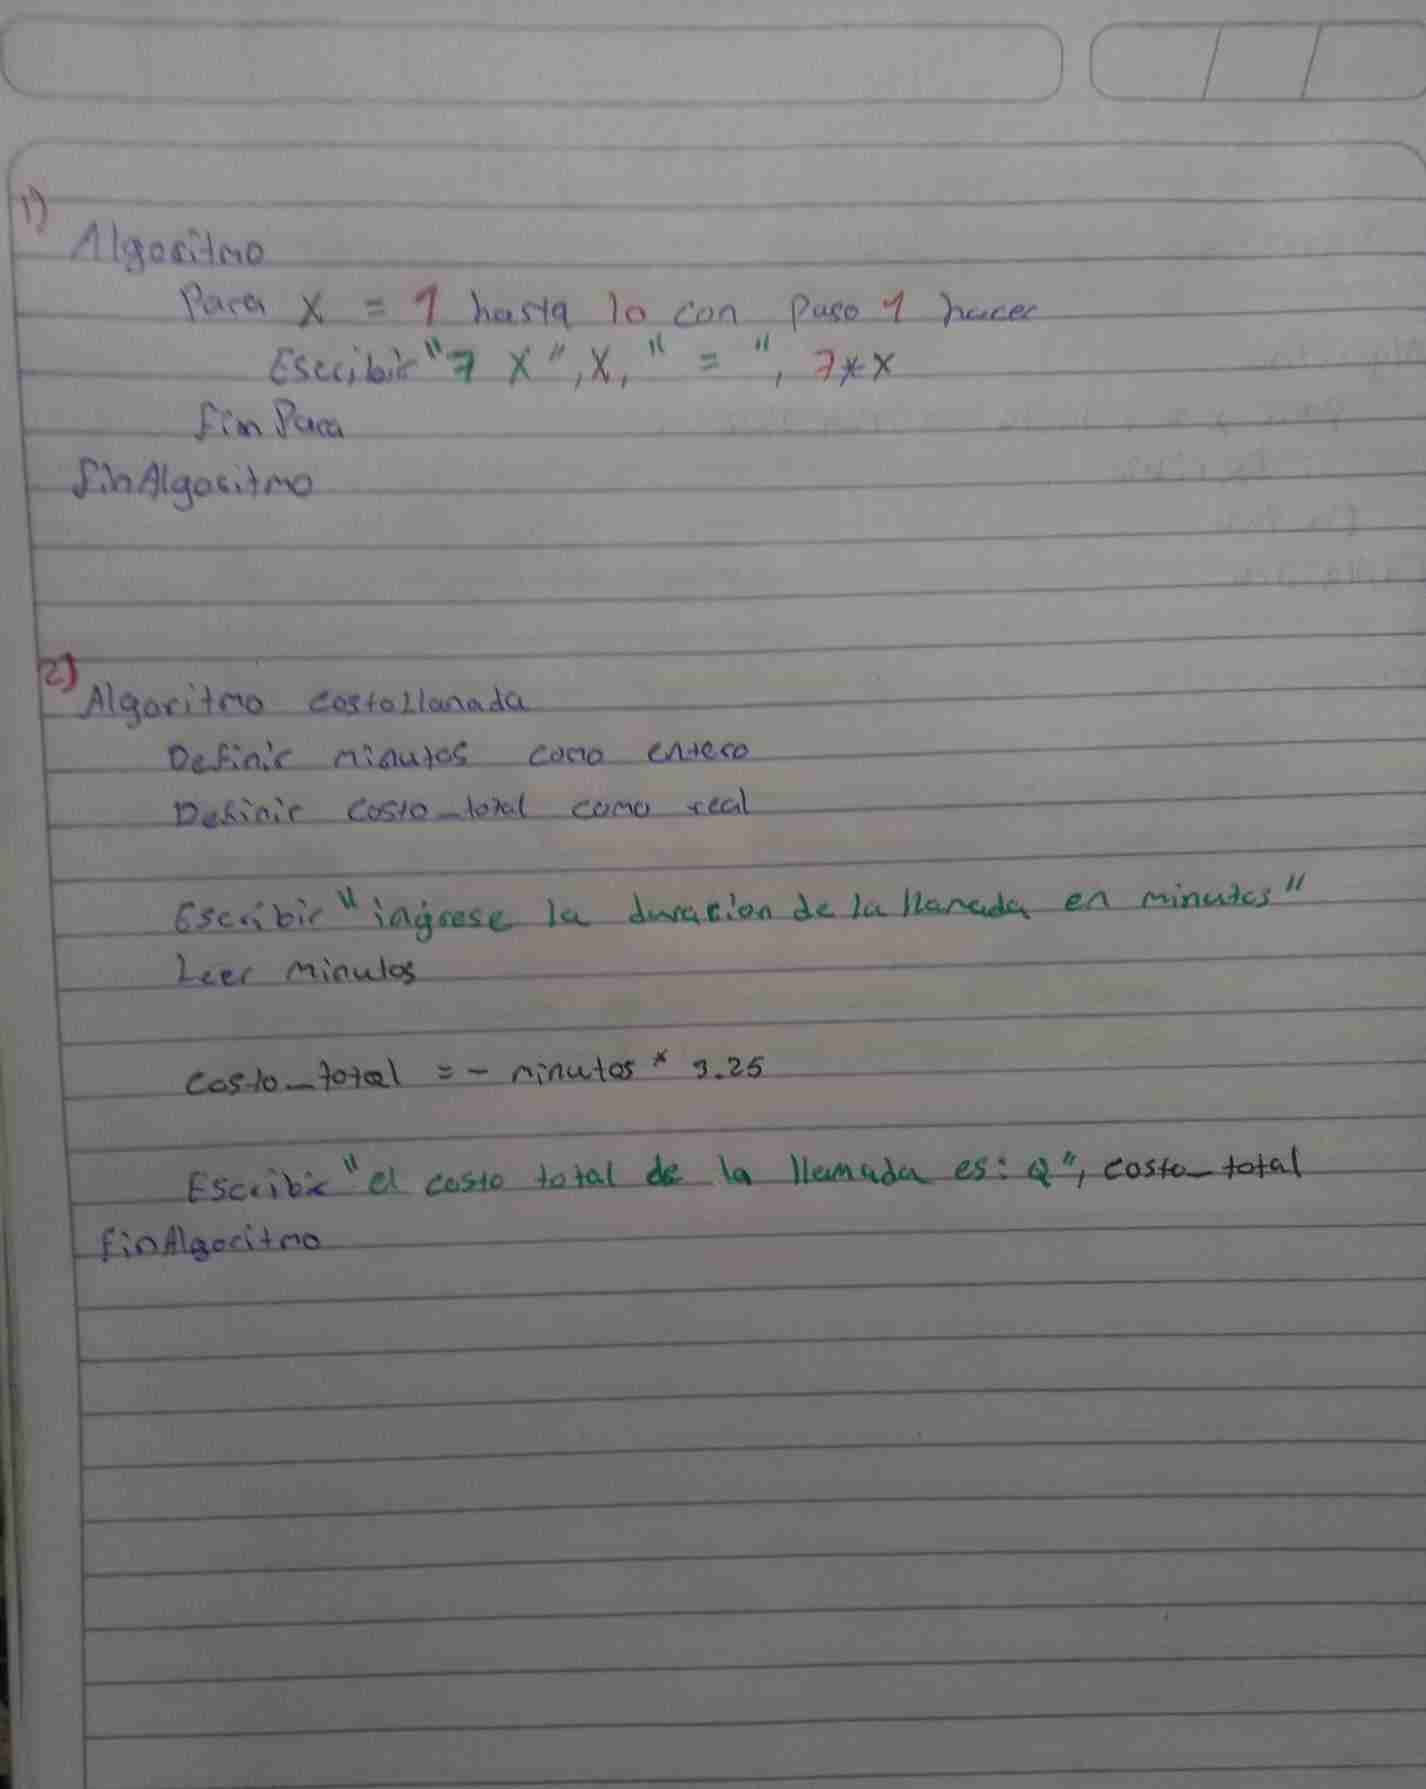 1)
Algoritmo
Para X = 1 hasta 10 con paso 1 hacer
Escribir "7 X", X, " = ", 7*X
fin Para
finAlgoritmo
2)
Algoritmo costollamada
Definir minutos como entero
Definir costo_total como real
Escribir "ingrese la duracion de la llamada en minutos"
Leer minutos
costo_total = - minutos * 3.25
Escribir "el costo total de la llamada es: Q", costo_total
finAlgoritmo